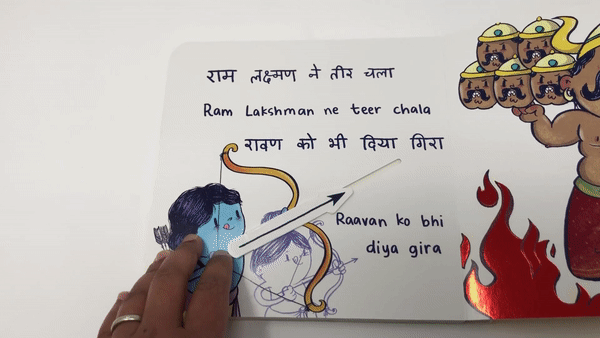 राम लक्ष्मण ने तीर चला
Ram Lakshman ne teer chala
रावण को भी दिया गिरा
Raavan ko bhi
diya gira